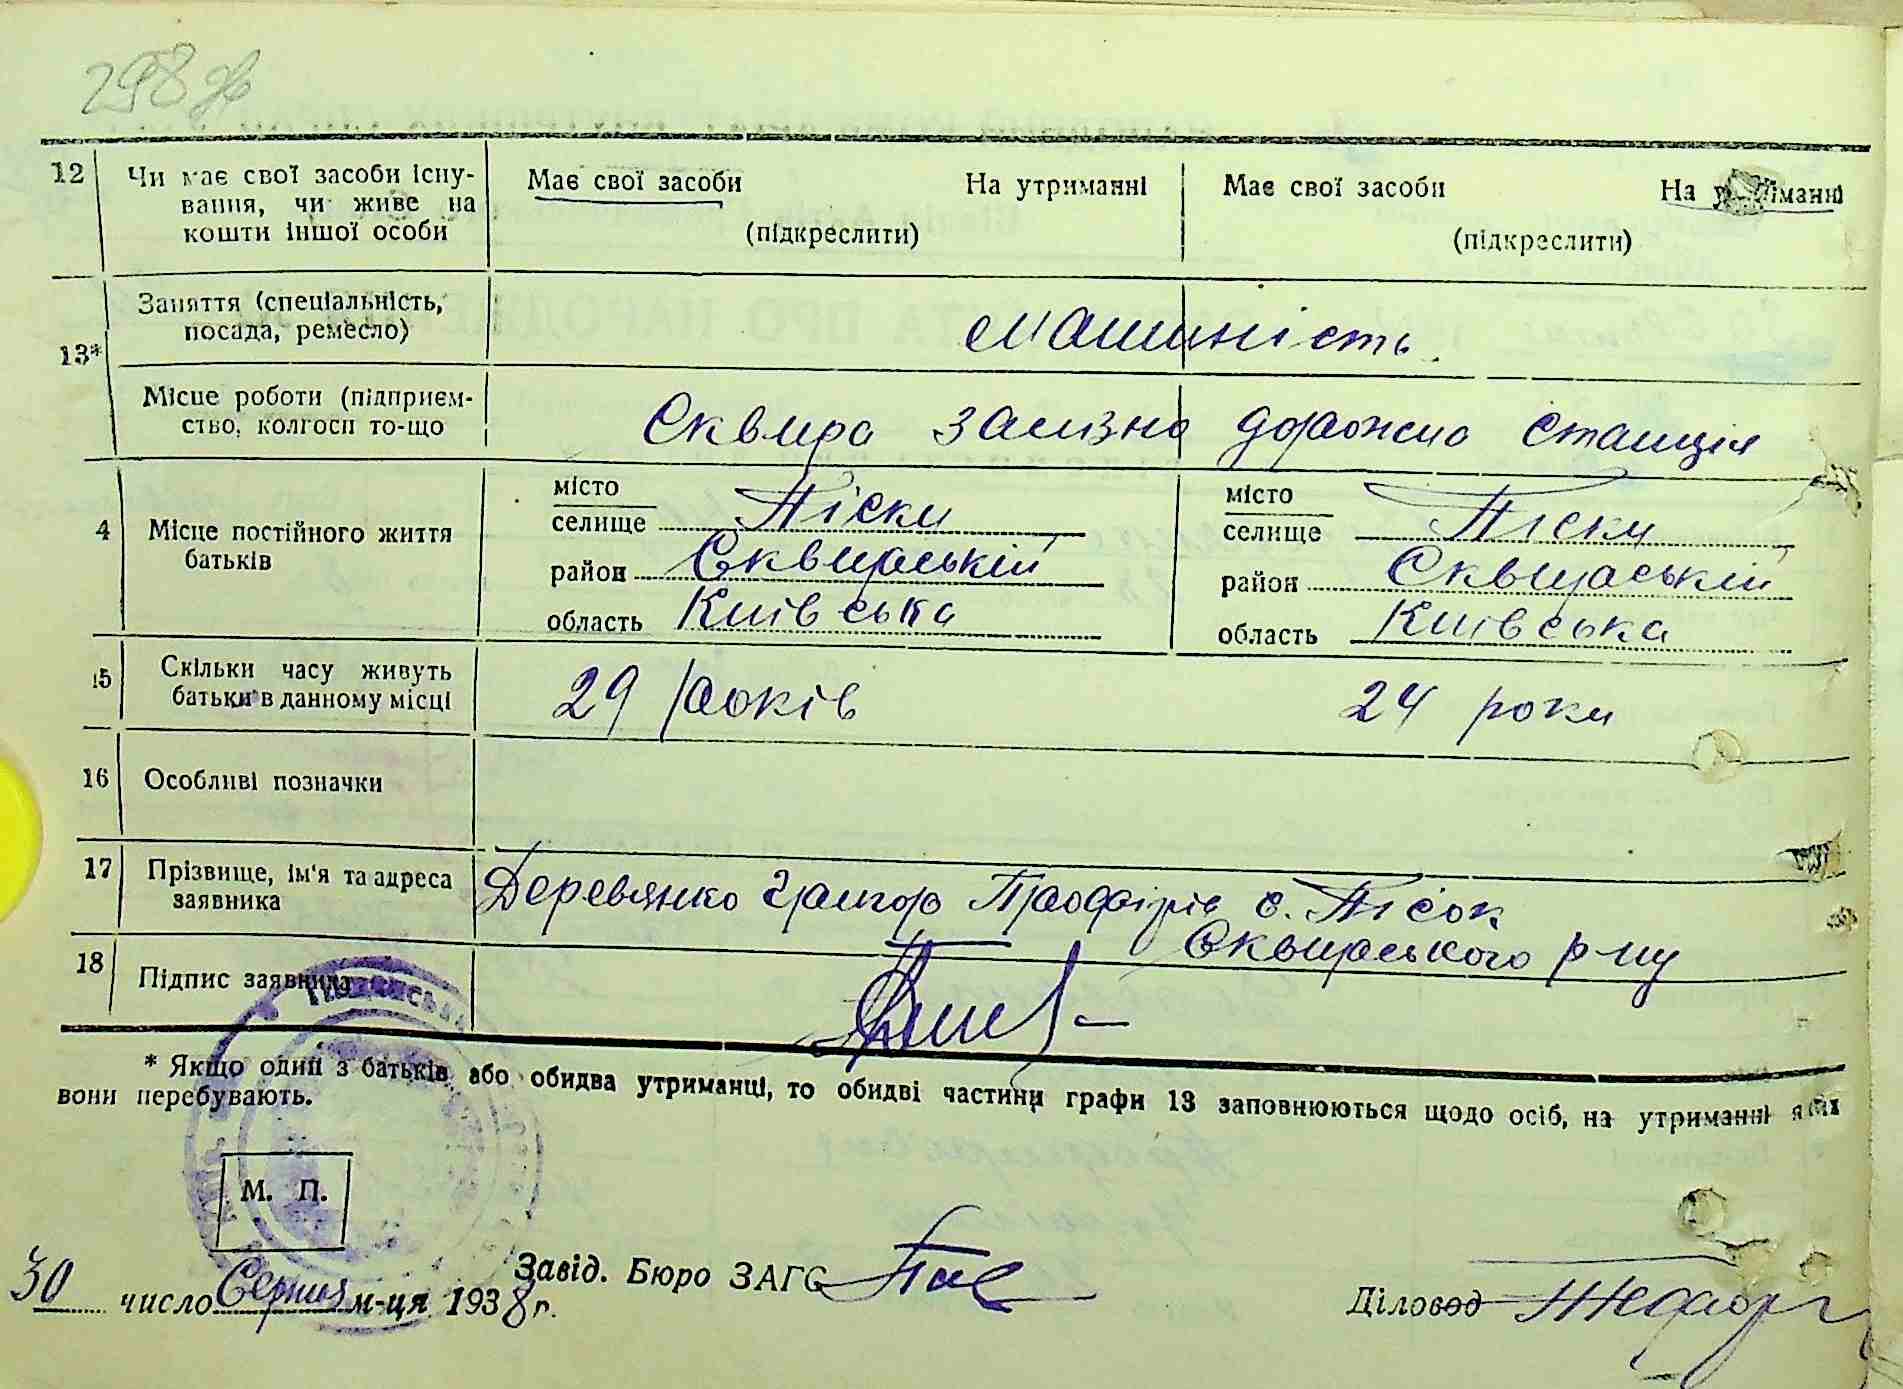 298
12 Чи має свої засоби існу- Має свої засоби На утриманні Має свої засоби На утриманні
вання, чи живе на
кошти іншої особи (підкреслити) (підкреслити)
13* Заняття (спеціальність,
посада, ремесло) машиність
Місце роботи (підприєм- Сквира зализно дорожна станція
ство, колгосп то-що
4 Місце постійного життя
батьків
місто місто
селище Піски селище Піски
район Сквирський район Сквирський
область Київська область Київська
15 Скільки часу живуть
батьки в данному місці 29 років 24 роки
16 Особливі позначки
17 Прізвище, ім'я та адреса Деревянко Григор с. Пісок
заявника Сквирського р-ну
18 Підпис заявника
* Якщо один з батьків або обидва утриманці, то обидві частини графи 13 заповнюються щодо осіб, на утриманні яких
вони перебувають.
М. П.
Завід. Бюро ЗАГС
30 число Серпня м-ця 1938 г. Діловод